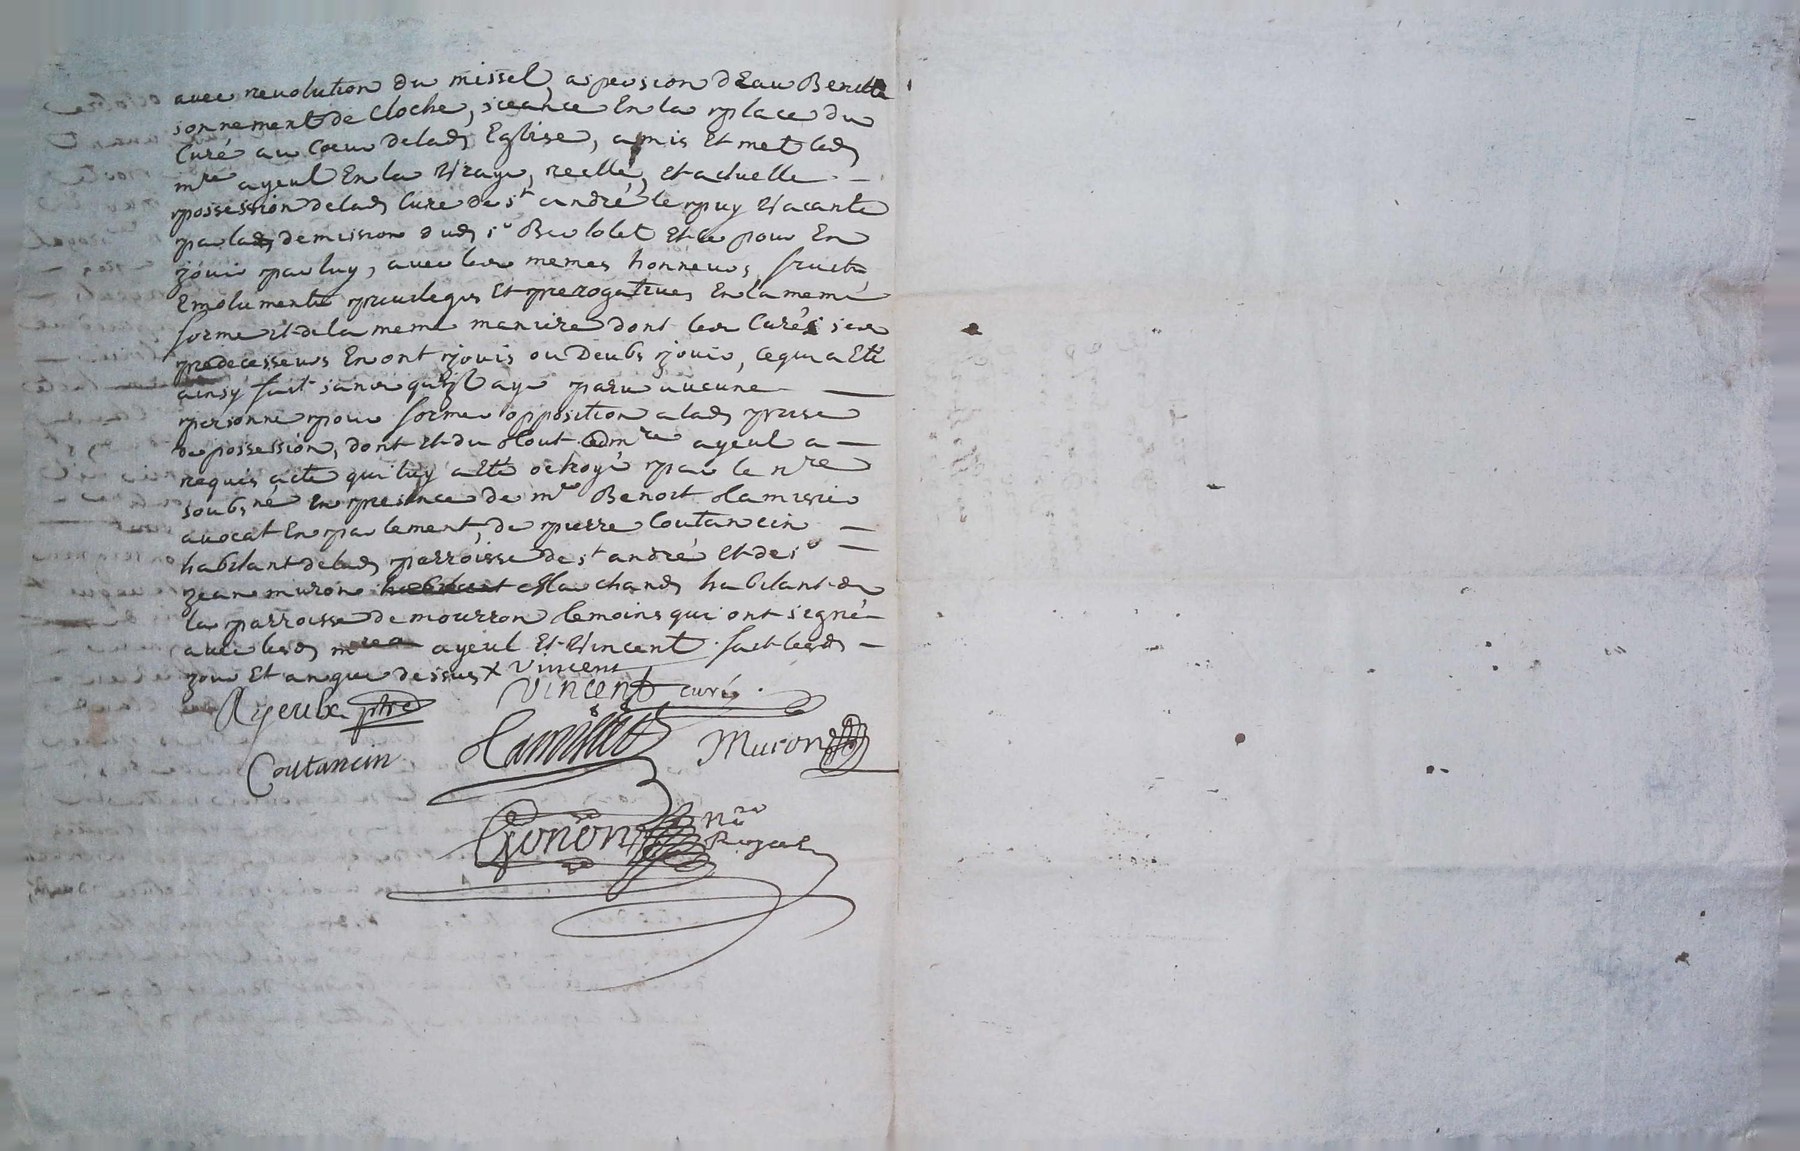 avec revolution du missel, aspersion d'Eau Benitte
sonnement de Cloche, sceance En la place du
Curé au Cœur delad Eglise, a mis Et met led
mre ayeul En la Vraye, reelle, Et actuelle —
possession delad Cure de st andré le puy Vacante
par lad demission dud sr Bertolet Et ce pour En
jouir par luy, avec les memes honneurs, fruits
Emoluments privileges Et prerogatives En la meme
forme et de la meme maniere dont les Curés ses
predecesseurs En ont jouis ou Deubs jouir, ce qui a Eté
ainsy fait sans qu'il aye paru aucune —
personne pour former opposition a lad prise
de possession, dont Et du tout led mre ayeul a —
requis acte qui luy a Eté octroyé par le nre
soubsné En presence de mre Benoit
avocat En parlement, de pierre Coutancin —
habitant delad parroisse de st andré Et de sr —
jean muron Marchand habitant de
la parroisse de mourron temoins qui ont signé
avec lesd mres ayeul Et Vincent fait lesd —
jour Et an que dessus x Vincent
Vincent curé
Ayeul ptre
Coutancin
Muron
Gonon Nre
Royal